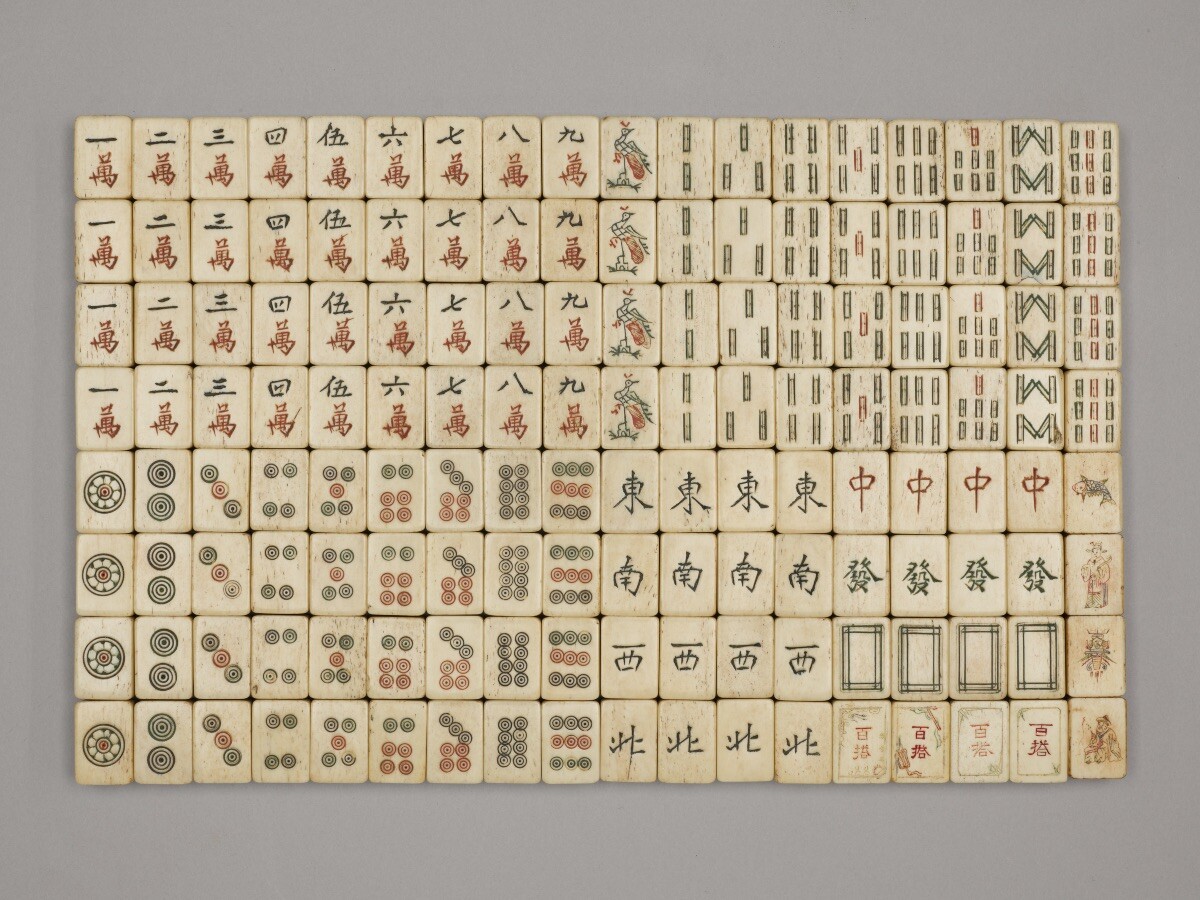 一 二 三 四 伍 六 七 八 九
萬 萬 萬 萬 萬 萬 萬 萬 萬
一 二 三 四 伍 六 七 八 九
萬 萬 萬 萬 萬 萬 萬 萬 萬
一 二 三 四 伍 六 七 八 九
萬 萬 萬 萬 萬 萬 萬 萬 萬
一 二 三 四 伍 六 七 八 九
萬 萬 萬 萬 萬 萬 萬 萬 萬
東 東 東 東 中 中 中 中
南 南 南 南 發 發 發 發
西 西 西 西
北 北 北 北 百搭 百搭 百搭 百搭